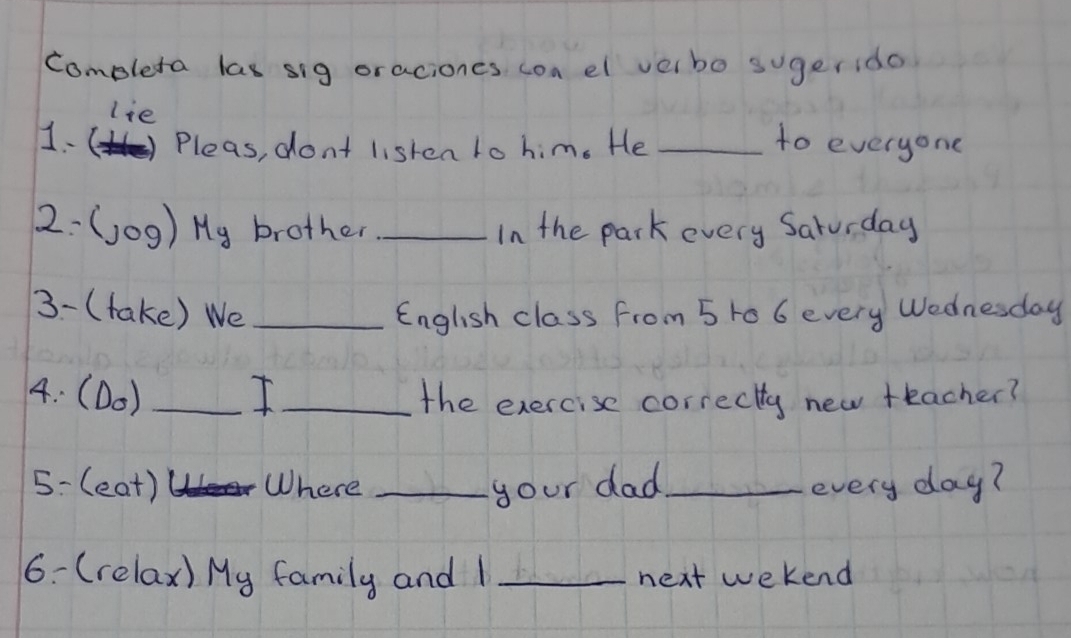 Completa las sig oraciones con el verbo sugerido
lie
1.- ( ) Pleas, dont listen to him. He _____ to everyone
2.- (jog) My brother _____ in the park every Saturday
3.- (take) We _____ English class from 5 to 6 every Wednesday
4.- (Do) _____ I _____ the exercise correctly new teacher?
5.- (eat) Where _____ your dad _____ every day?
6.- (relax) My family and I _____ next wekend